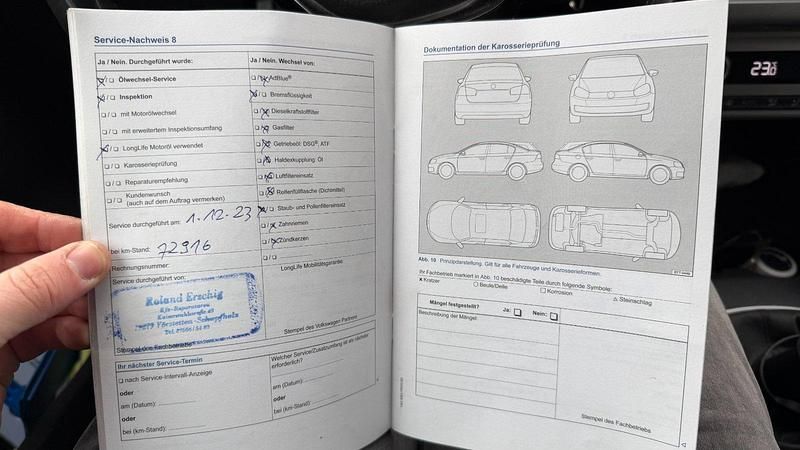 Service-Nachweis 8
Ja / Nein. Durchgeführt wurde:
Ölwechsel-Service
Inspektion
mit Motorölwechsel
mit erweitertem Inspektionsumfang
LongLife Motoröl verwendet
Karosserieprüfung
Reparaturempfehlung
Kundenwunsch
(auch auf dem Auftrag vermerken)
Service durchgeführt am: 1.12.23
bei km-Stand: 72916
Rechnungsnummer:
Service durchgeführt von:
Roland Erschig
Kfz-Reparaturen
79279 Förstetten-Schupfholz
Stempel des Fachbetriebs
Ja / Nein. Wechsel von:
AdBlue®
Bremsflüssigkeit
Dieselkraftstofffilter
Gasfilter
Getriebeöl: DSG®, ATF
Haldexkupplung: Öl
Luftfiltereinsatz
Reifenfüllflasche (Dichtmittel)
Staub- und Pollenfiltereinsatz
Zahnriemen
Zündkerzen
LongLife Mobilitätsgarantie
Stempel des Volkswagen Partners
Ihr nächster Service-Termin
nach Service-Intervall-Anzeige
oder
am (Datum):
oder
bei (km-Stand):
Welcher Service/Zusatzumfang ist als nächster
erforderlich?
am (Datum):
oder
bei (km-Stand):
Dokumentation der Karosserieprüfung
Abb. 10 Prinzipdarstellung. Gilt für alle Fahrzeuge und Karosserieformen.
Ihr Fachbetrieb markiert in Abb. 10 beschädigte Teile durch folgende Symbole:
x Kratzer
○ Beule/Delle
□ Korrosion
△ Steinschlag
Mängel festgestellt?
Ja:
Nein:
Beschreibung der Mängel:
Stempel des Fachbetriebs
23.5